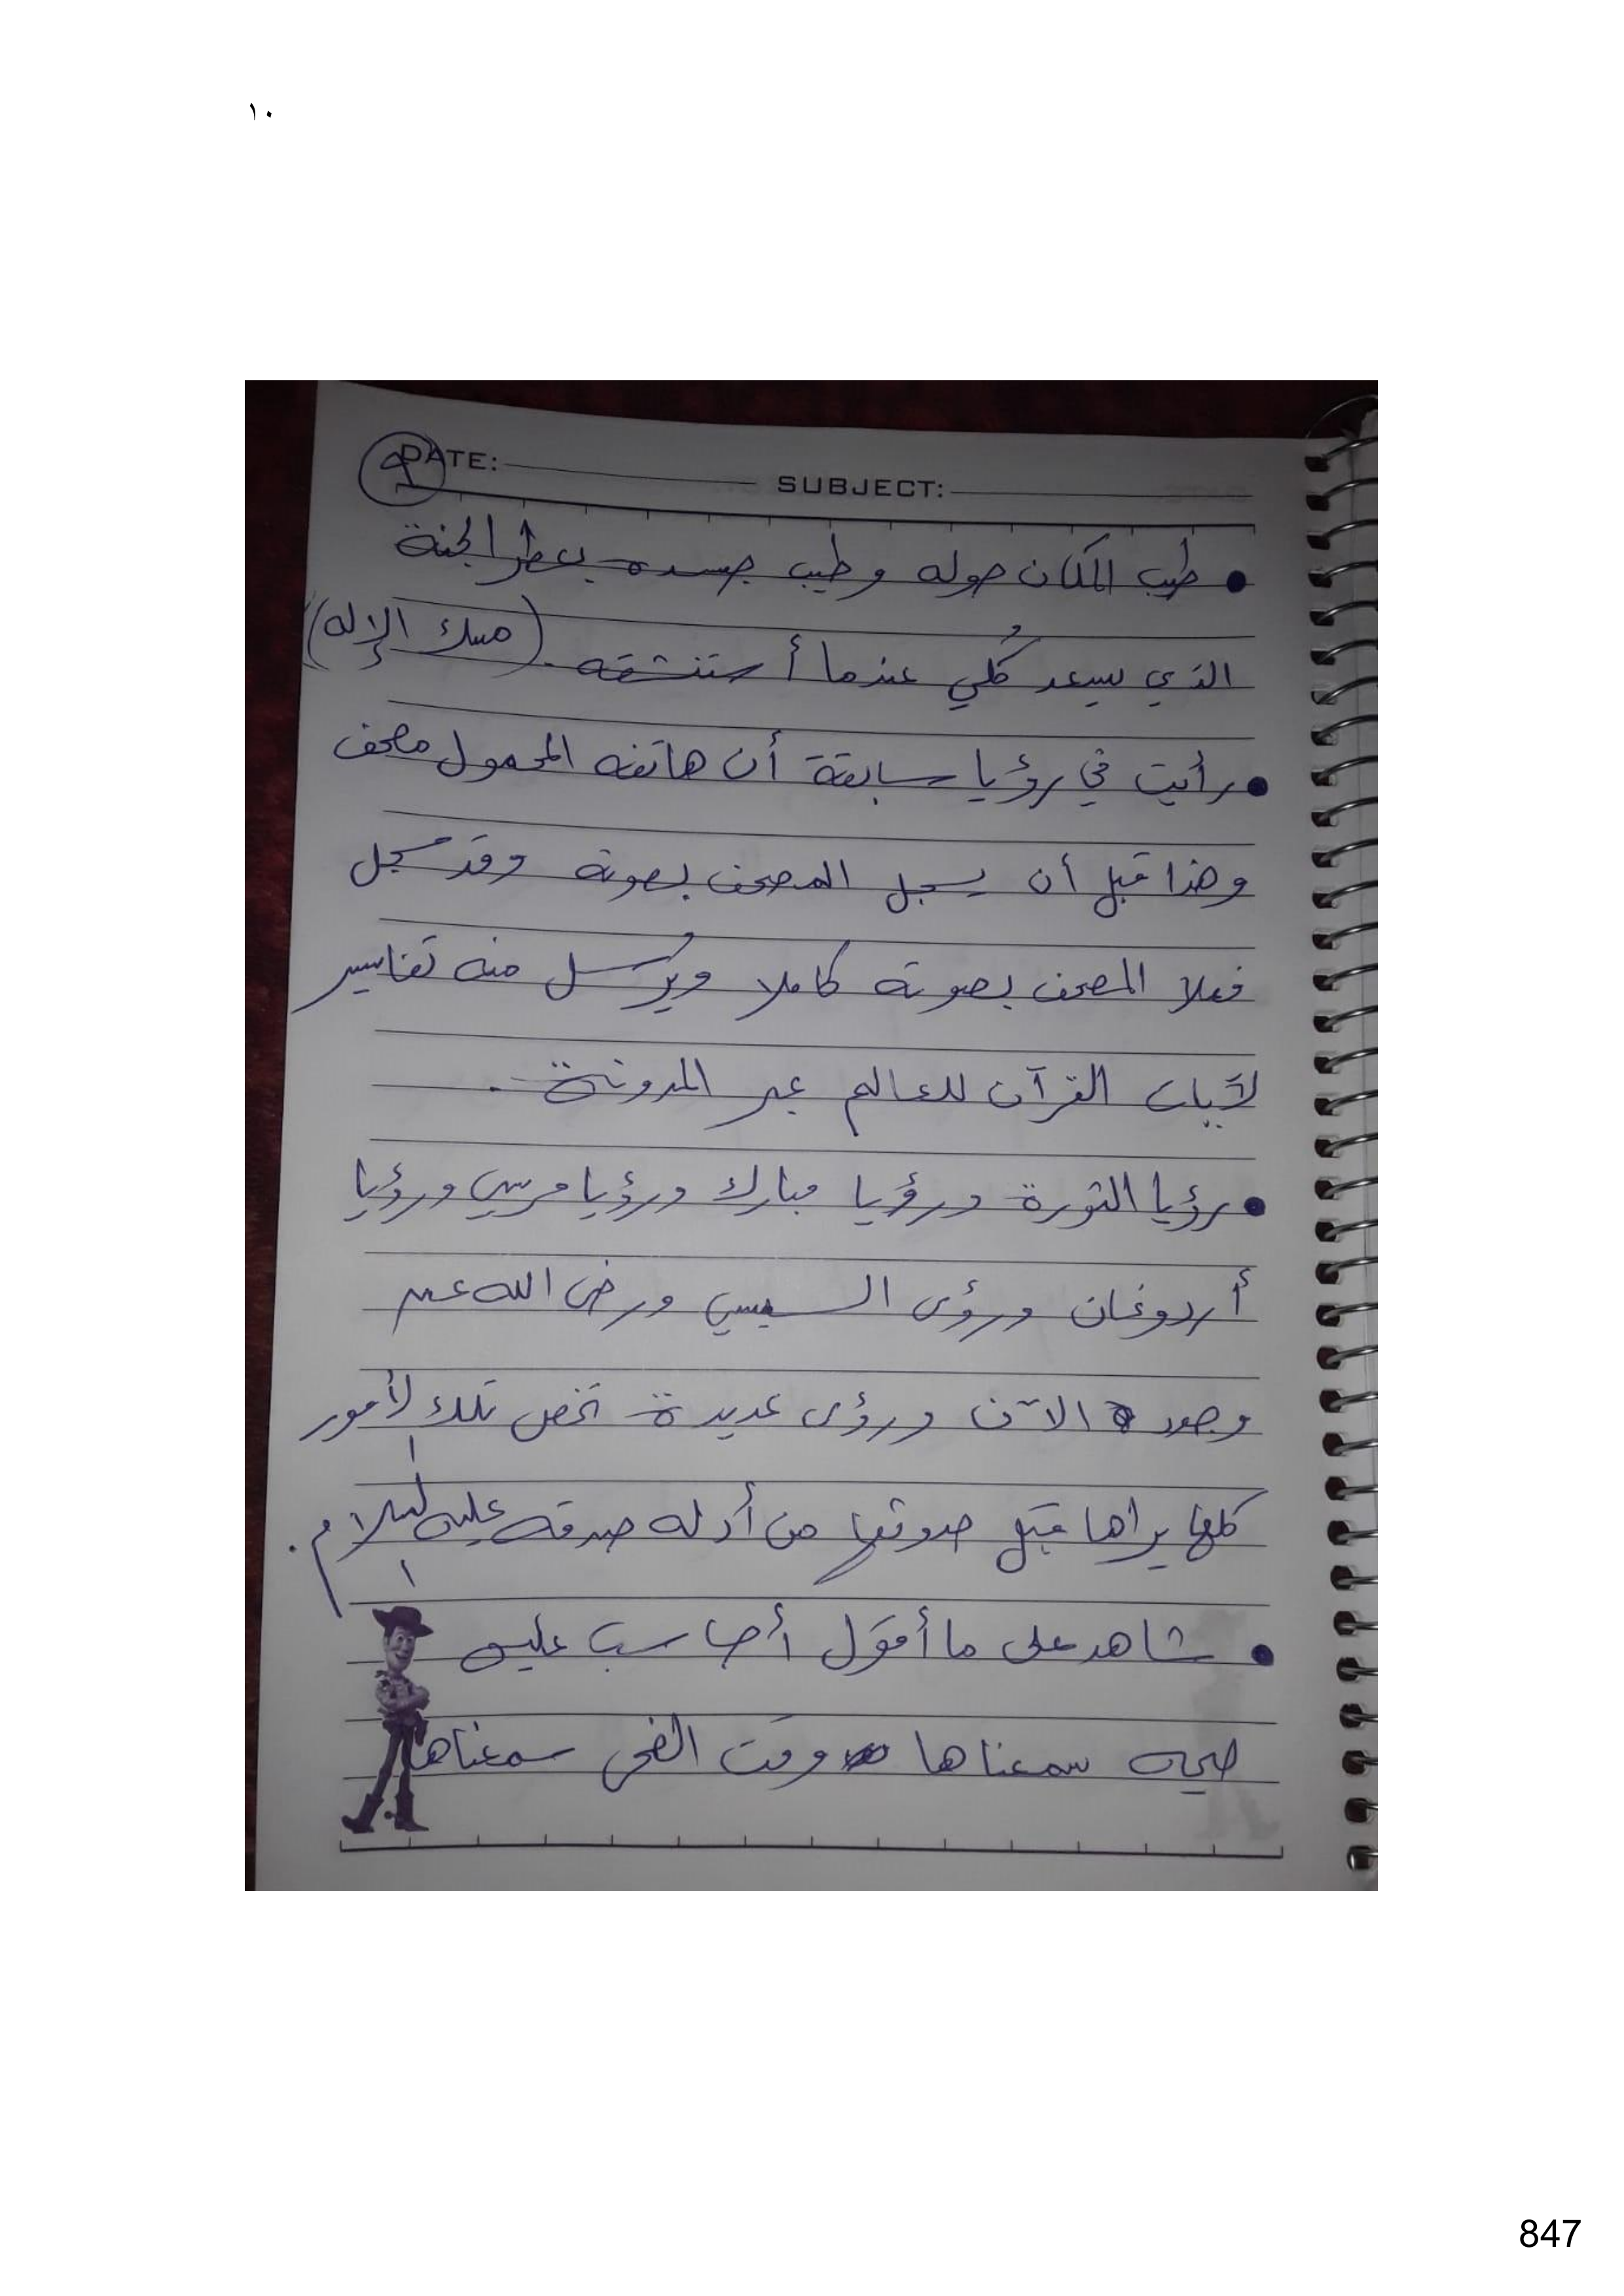 ١٠
٩
DATE: SUBJECT:
● طيب المكان حوله وطيب جسده بعطر الجنة
الذي يسعد كُلي عندما أستنشقه . (مسك الإله)
● رأيت في رؤيا سابقة أن هاتفه المحمول مصحف
وهذا قبل أن يسجل المصحف بصوته وقد سجل
فعلا المصحف بصوته كاملا ويُرسل منه تفاسير
لآيات القرآن للعالم عبر المدونة .
● رؤيا الثورة ورؤيا مبارك ورؤيا مرسي ورؤيا
أردوغان ورؤى السيسي ورضى الله عن
وجوده الآن ورؤى عديدة تخص تلك الأمور
كلها يراها قبل حدوثها من أدلة صدقه عليه السلام .
● شاهد على ما أقول أحاسب عليه
صيحه سمعناها وقت الضحى سمعناها
847